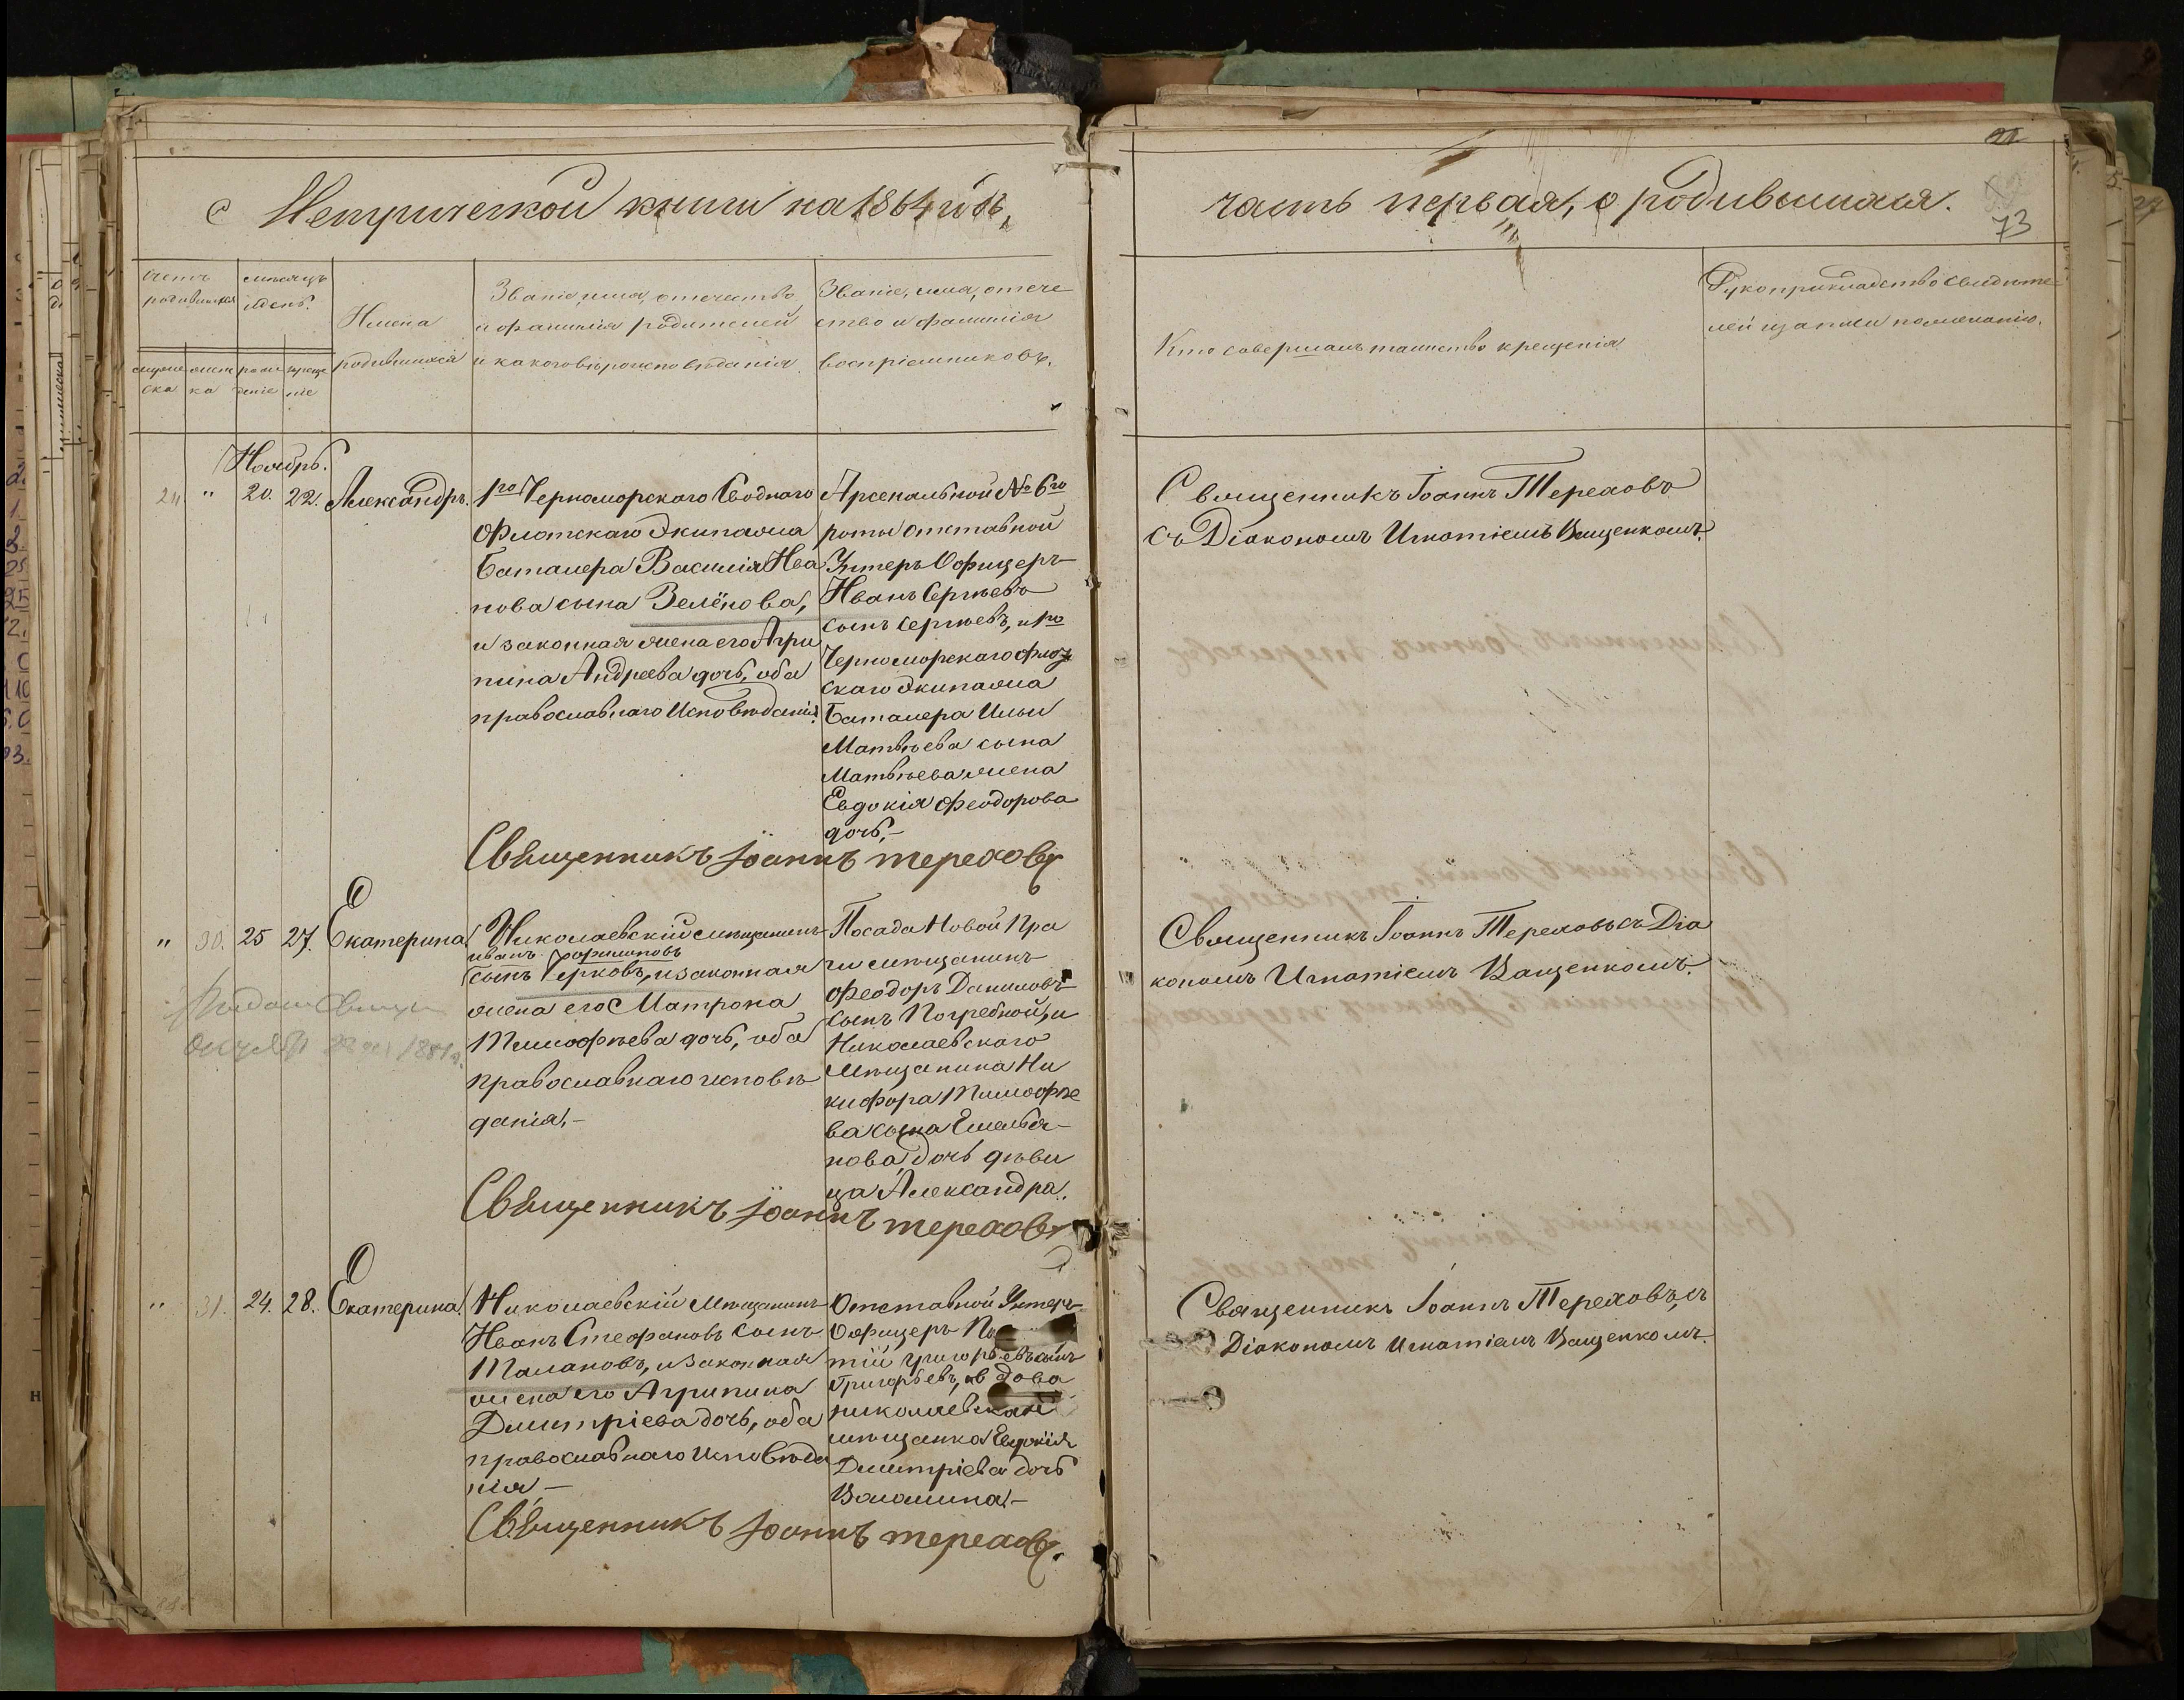 Метрической книги на 1864 годъ,
Счетъ родившихся
мѣсяцъ и день.
мужеска
женска
рожденіе
крещеніе
Имена
родившихся
Званіе, имя, отчество
и фамилія родителей
и какого вѣроисповѣданія.
Званіе, имя, отче
ство и фамилія
воспріемниковъ.
Ноябрь.
24. " 20. 22. Александръ.
1го Черноморскаго Своднаго
Флотскаго Экипажа
Баталера Василія Ива
нова сына Зелёнова,
и законная жена его Агри
пина Андреева дочь, оба
православнаго Исповѣданія.
Арсенальной № 6го
роты отставной
Унтеръ Офицеръ
Иванъ Сергѣевъ
сынъ Сергѣевъ, и 1го
Черноморскаго флот
скаго Экипажа
Баталера Ильи
Матвѣева сына
Матвѣева жена
Евдокія Феодорова
дочь,-
Священникъ Іоаннъ Тереховъ
" 30. 25 27. Екатерина.
Николаевскій мѣщанинъ
иванъ
сынъ Герковъ, и законная
жена его Матрона
Тимофѣева дочь, оба
православнаго исповѣ
данія,-
Посада Новой Пра
ги мѣщанинъ
Феодоръ Даниловъ
сынъ Погребной, и
Николаевскаго
мѣщанина Ни
кифора Тимофѣе
ва сына Емелья-
нова, дочь дѣви
ца Александра.
Священникъ Іоаннъ Тереховъ
" 31. 24. 28. Екатерина.
Николаевскій Мѣщанинъ
Иванъ Стефановъ сынъ
Малановъ, и законная
жена его Агрипина
Дмитріева дочь, оба
православнаго Исповѣда
нія,-
Отставной Унтеръ
Офицеръ
тій Григорьевъ сынъ
Григорьевъ, и вдова
николаевская
мѣщанка Евдокія
Дмитріева дочь
Священникъ Іоаннъ Тереховъ.
часть первая, о родившихся.
73
Кто совершалъ таинство крещенія.
Рукоприкладство свидѣте-
лей записи по желанію.
Священникъ Іоаннъ Тереховъ
съ Діакономъ Игнатіемъ Ващенкомъ.
Священникъ Іоаннъ Тереховъ съ Діа
кономъ Игнатіемъ Ващенкомъ.
Священникъ Іоаннъ Тереховъ, съ
Діакономъ Игнатіемъ Ващенкомъ.